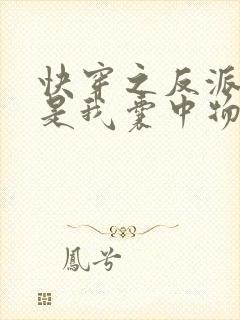 快穿之反派
是我囊中物
鳳兮